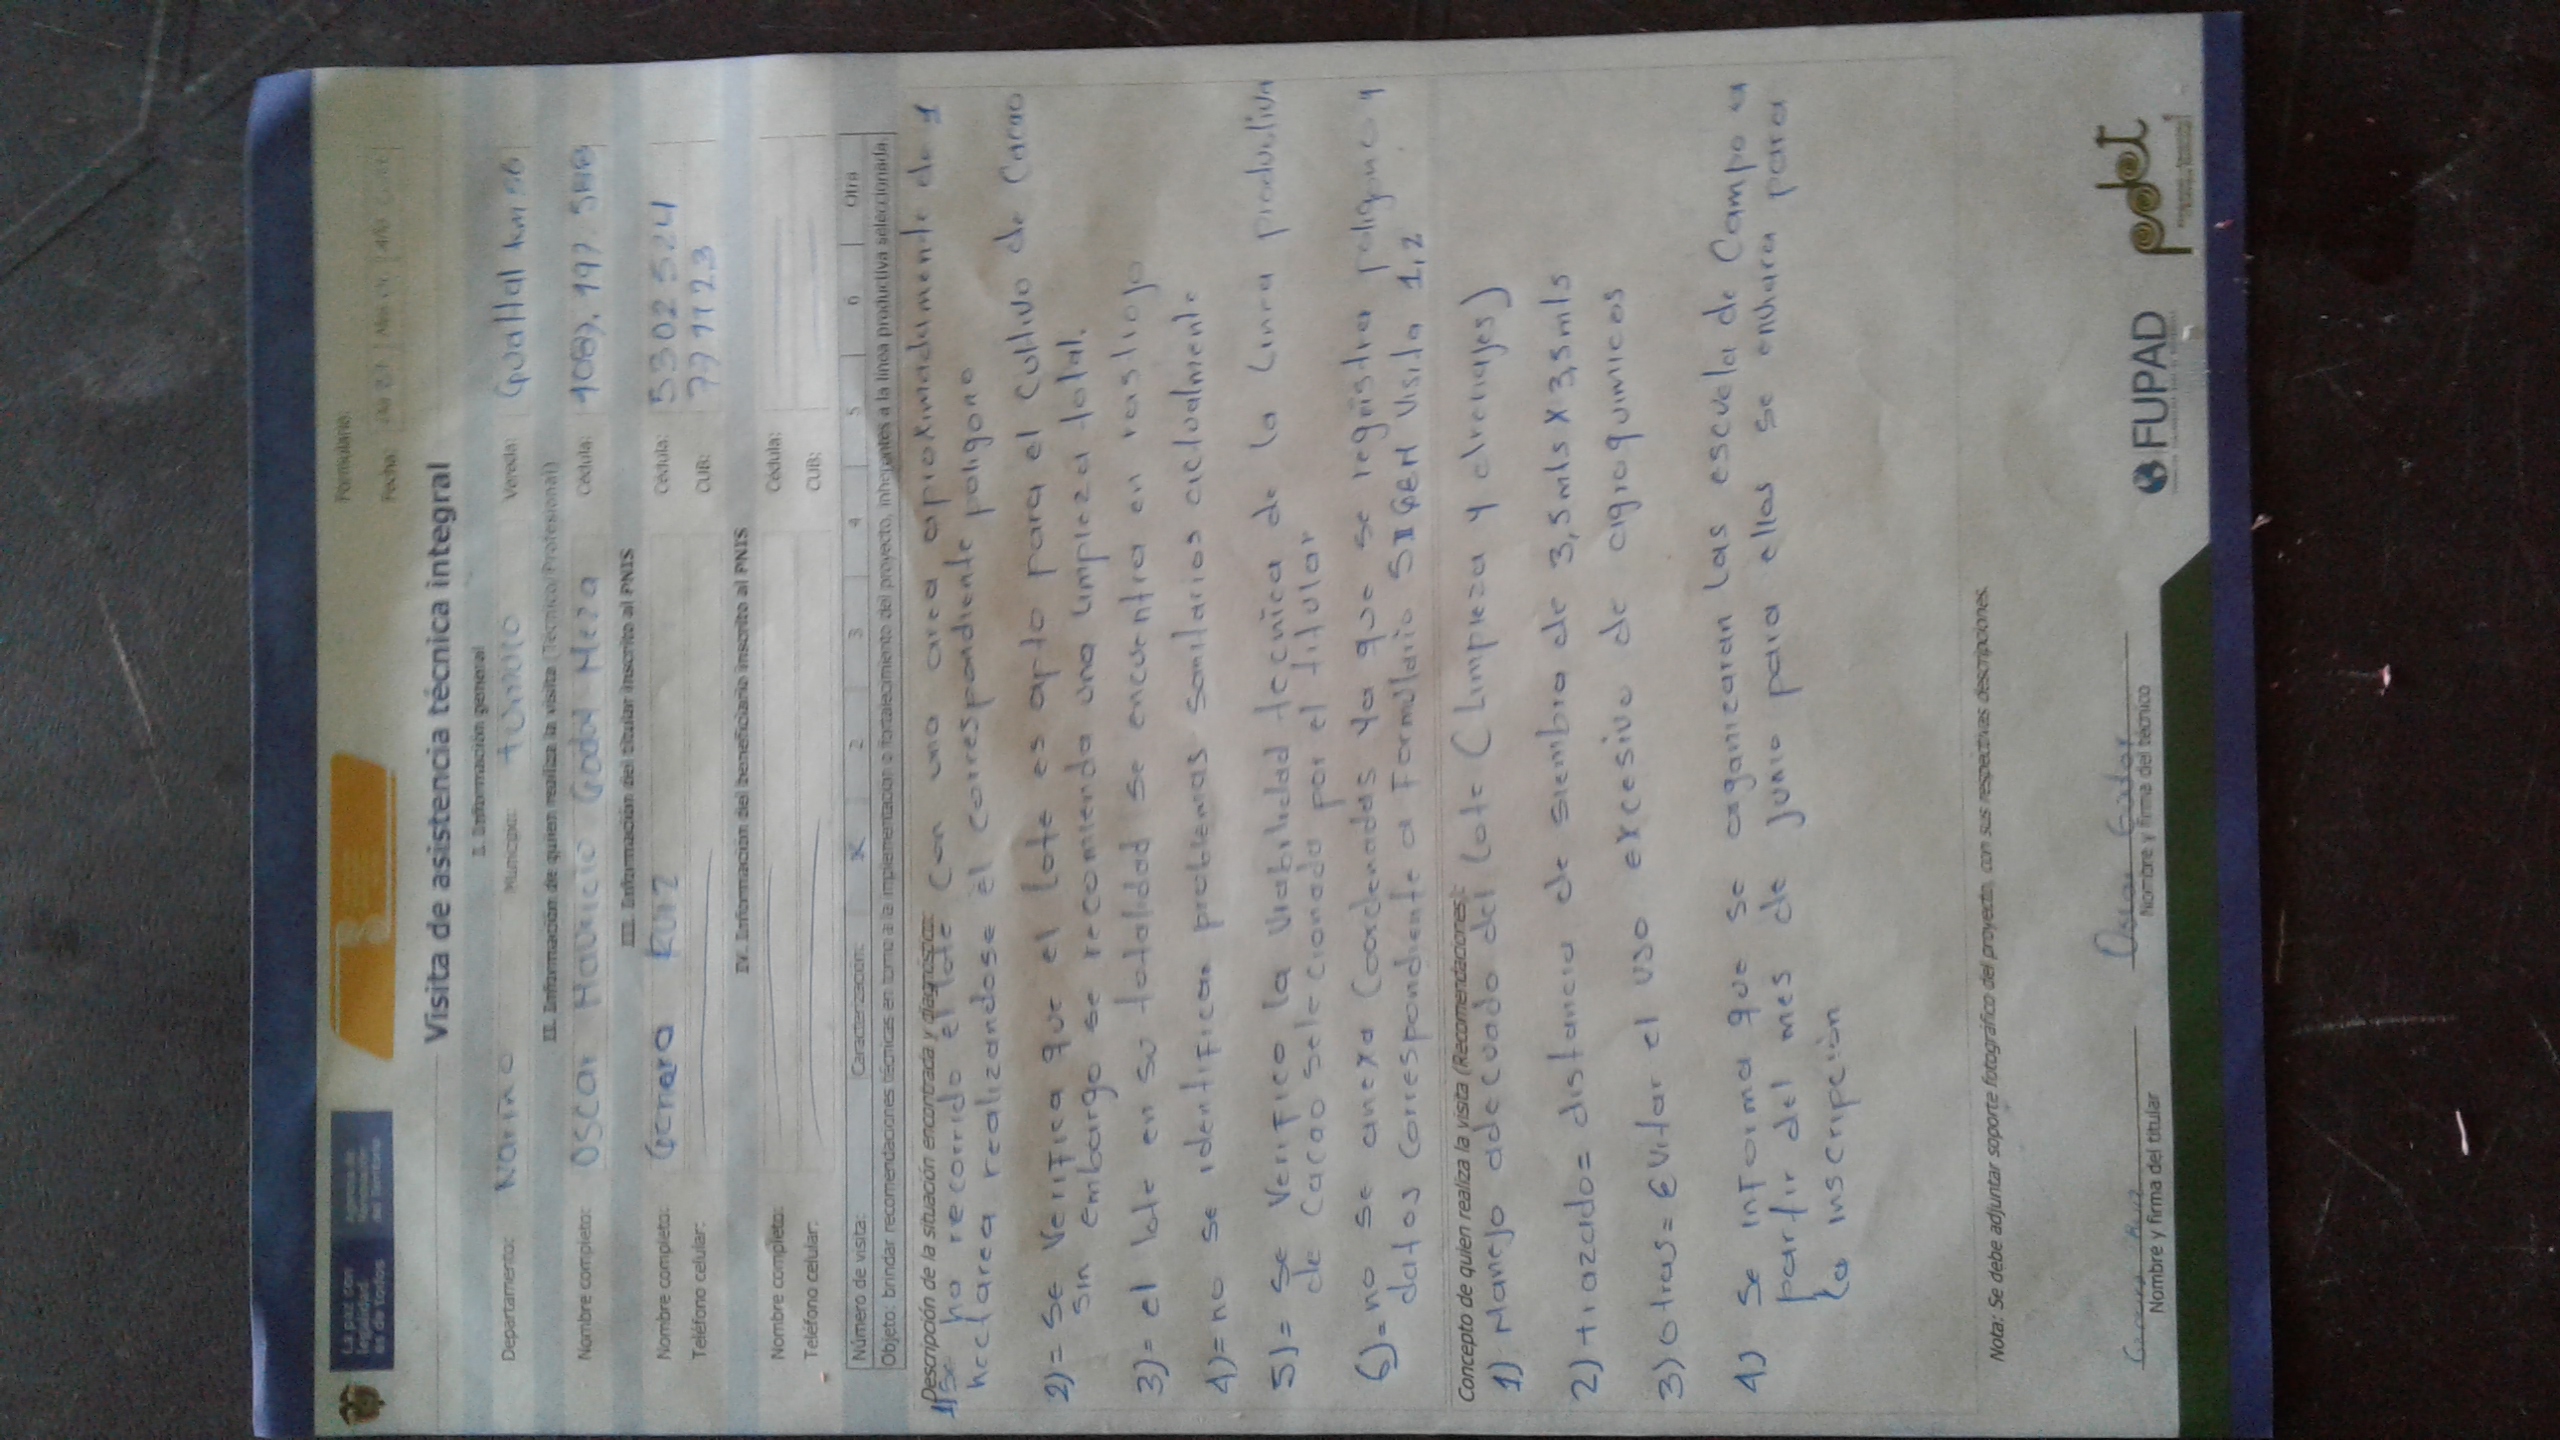 La paz con
legalidad
es de todos
Agencia de
Renovación
del Territorio
Formulario:
Fecha:
Visita de asistencia técnica integral
I. Información general
Departamento: Nariño Municipio: tumaco Vereda: Guallal km 56
II. Información de quien realiza la visita (Técnico/Profesional)
Nombre completo: Oscar Mauricio Godoy Meza Cédula:
III. Información del titular inscrito al PNIS
Nombre completo: Genaro Ruiz Cédula: 5302524
Teléfono celular: CUB:
IV. Información del beneficiario inscrito al PNIS
Nombre completo: Cédula:
Teléfono celular: CUB:
Número de visita: Caracterización: X 2 3 4 5 6 Otra
Objeto: brindar recomendaciones técnicas en torno a la implementación o fortalecimiento del proyecto, inherentes a la línea productiva seleccionada.
Descripción de la situación encontrada y diagnóstico:
1) Se ha recorrido el lote Con una area aproximadamente de 1
hectarea realizandose el correspondiente poligono
2)= Se Verifica que el lote es apto para el Cultivo de Cacao
Sin embargo se recomienda una limpieza total.
3)= el lote en su totalidad se encuentra en rastrojo
4)= no se identifican problemas sanitarios actualmente
5)= Se Verifico la Viabilidad tecnica de la Linea productiva
de Cacao Selecionada por el titular
6)= no se anexa Coordenadas ya que se registra poligono y
datos correspondiente a Formulario SIGEM Visita 1,2
Concepto de quien realiza la visita (Recomendaciones):
1) Manejo adecuado del Lote (Limpieza y drenajes)
2) trazado= distancia de siembra de 3,5mts X 3,5mts
3) Otras= Evitar el uso excesivo de agroquimicos
4) Se informa que se organizaran las escuela de Campo a
partir del mes de junio para ellos se enviara para
la inscripción
Nota: Se debe adjuntar soporte fotográfico del proyecto, con sus respectivas descripciones.
Genaro Ruiz Oscar Godoy
Nombre y firma del titular Nombre y firma del técnico
FUPAD
pdet